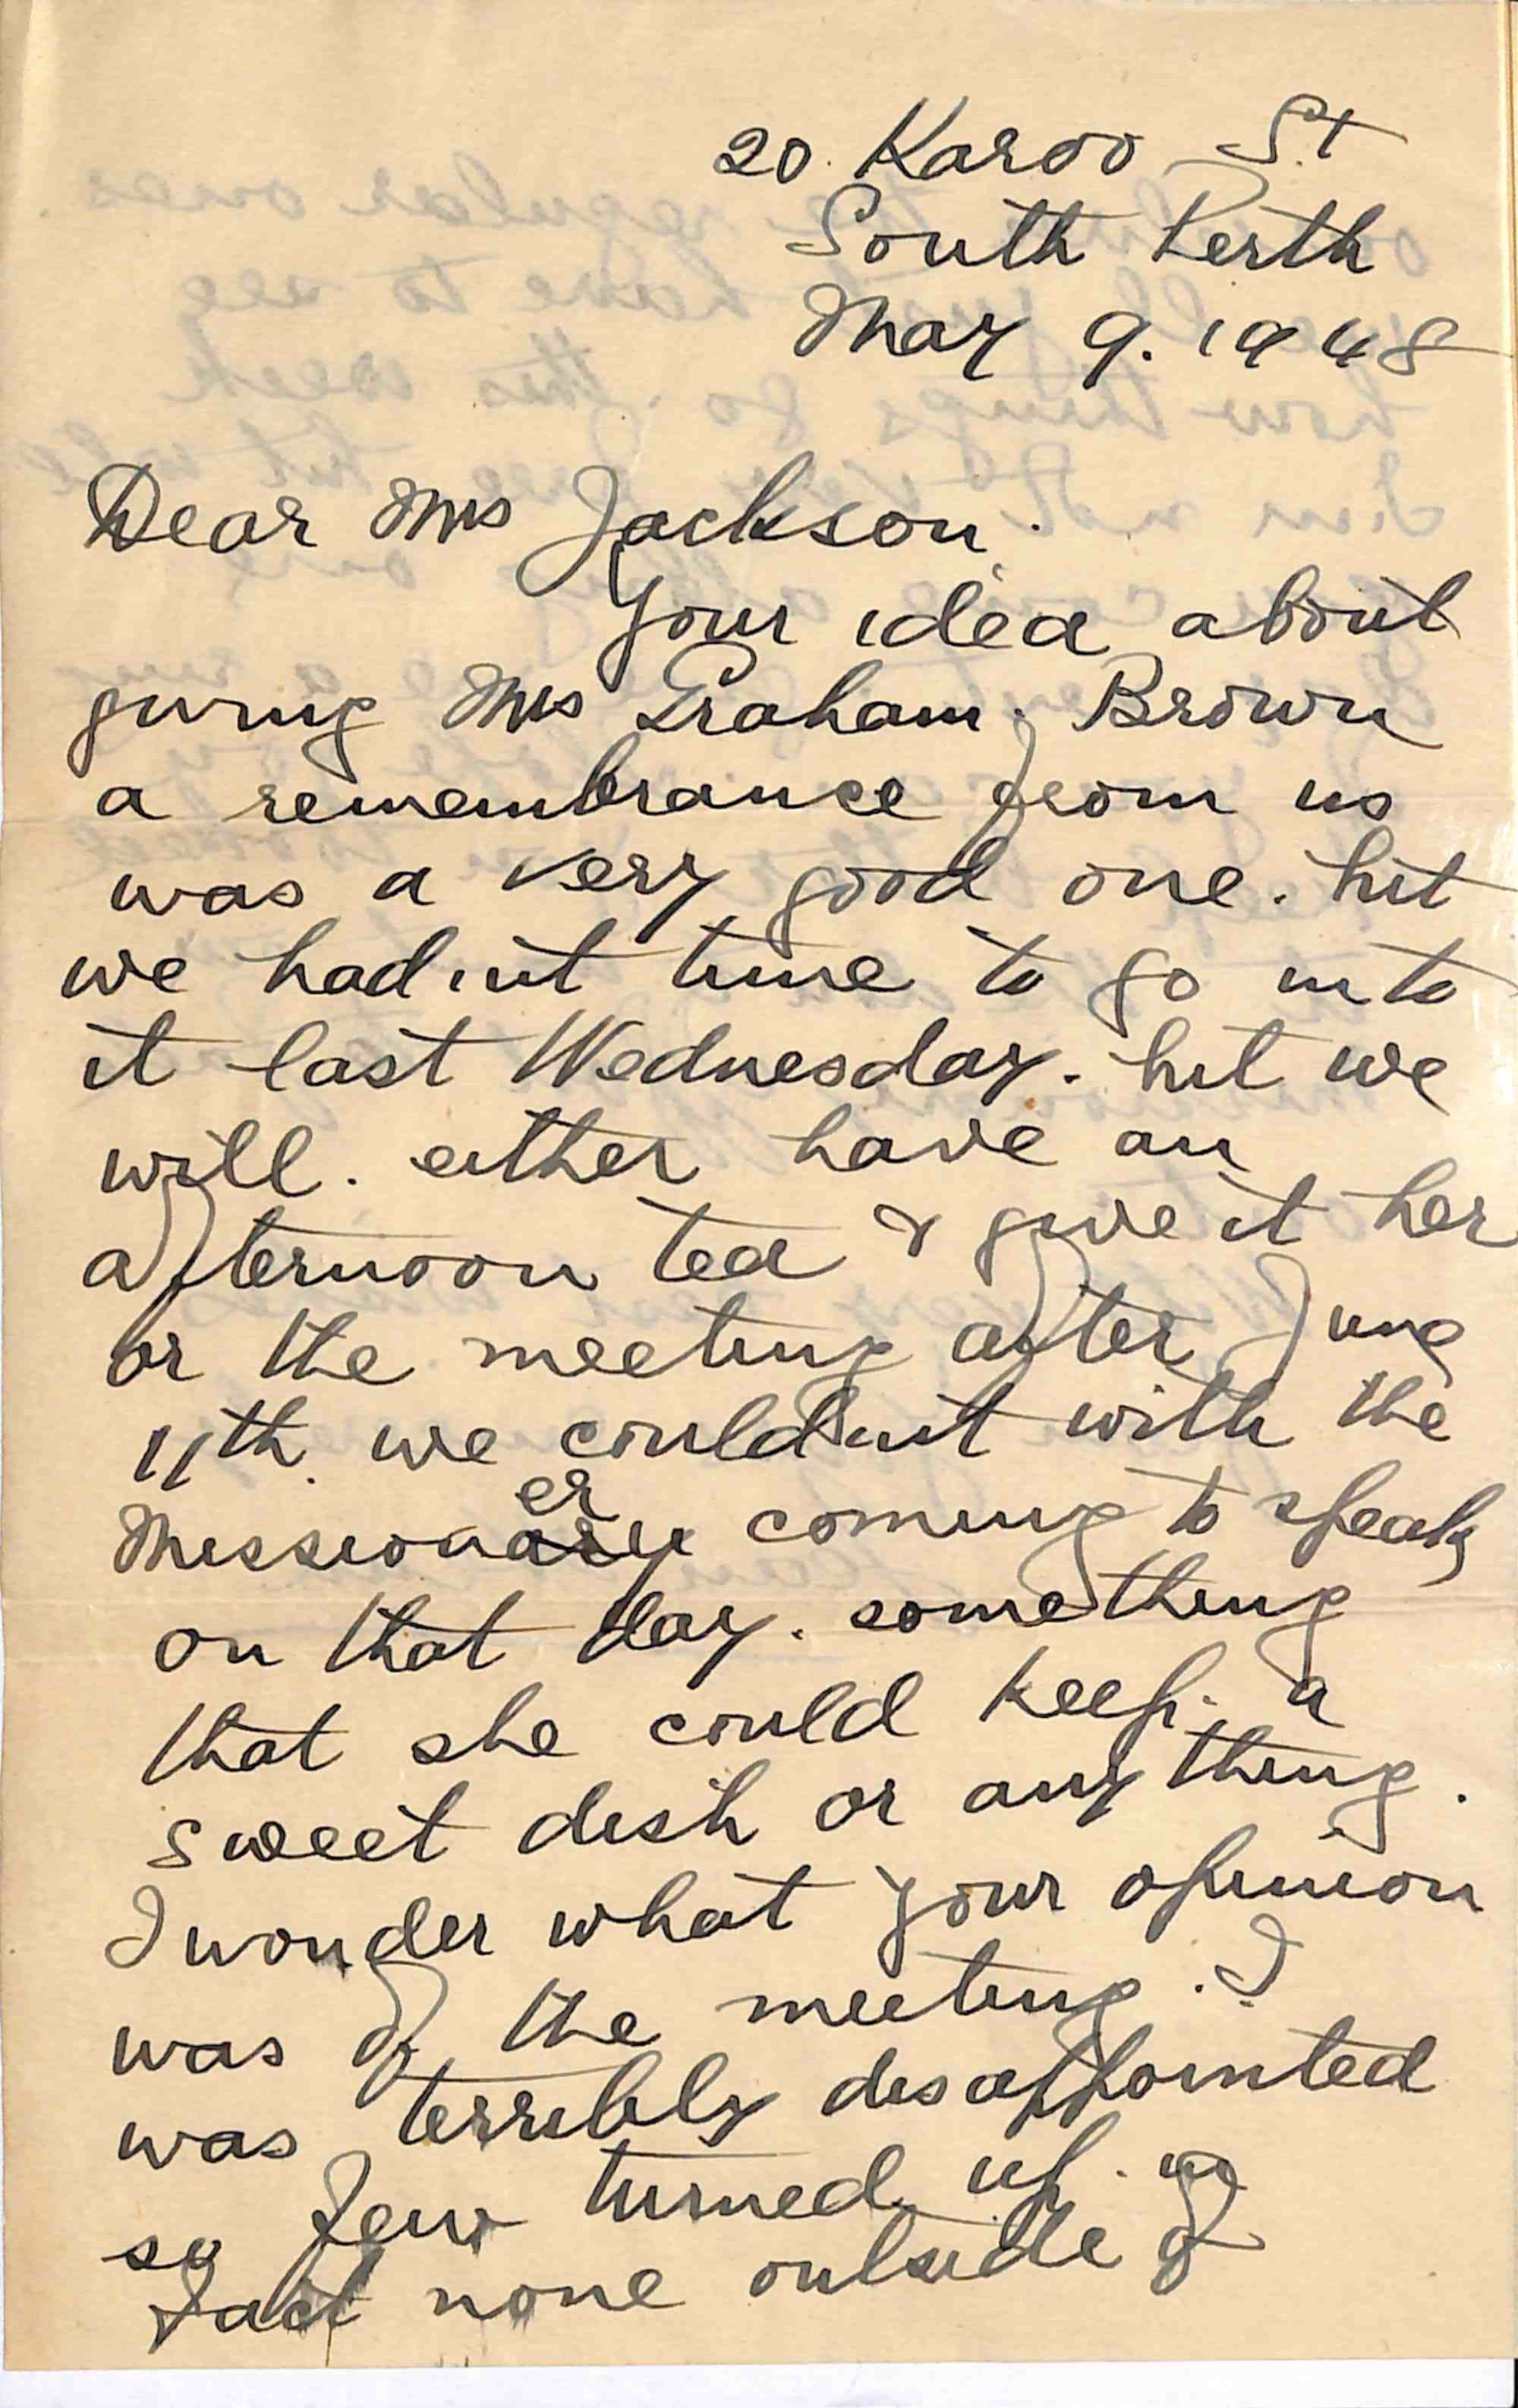 20. Karoo St
South Perth
May 9. 1948
Dear Mrs Jackson.
Your idea about
giving Mrs Graham. Brown
a remembrance from us
was a very good one. but
we had'nt time to go into
it last Wednesday. but we
will. either have an
afternoon tea & give it her
or the meeting after June
11th. we could'nt with the
er
Missionary coming to speak
on that day. something
that she could keep. a
sweet dish or any thing.
I wonder what your opinion
was of the meeting. I
was terribly disappointed
so few turned up.
fact none outside of